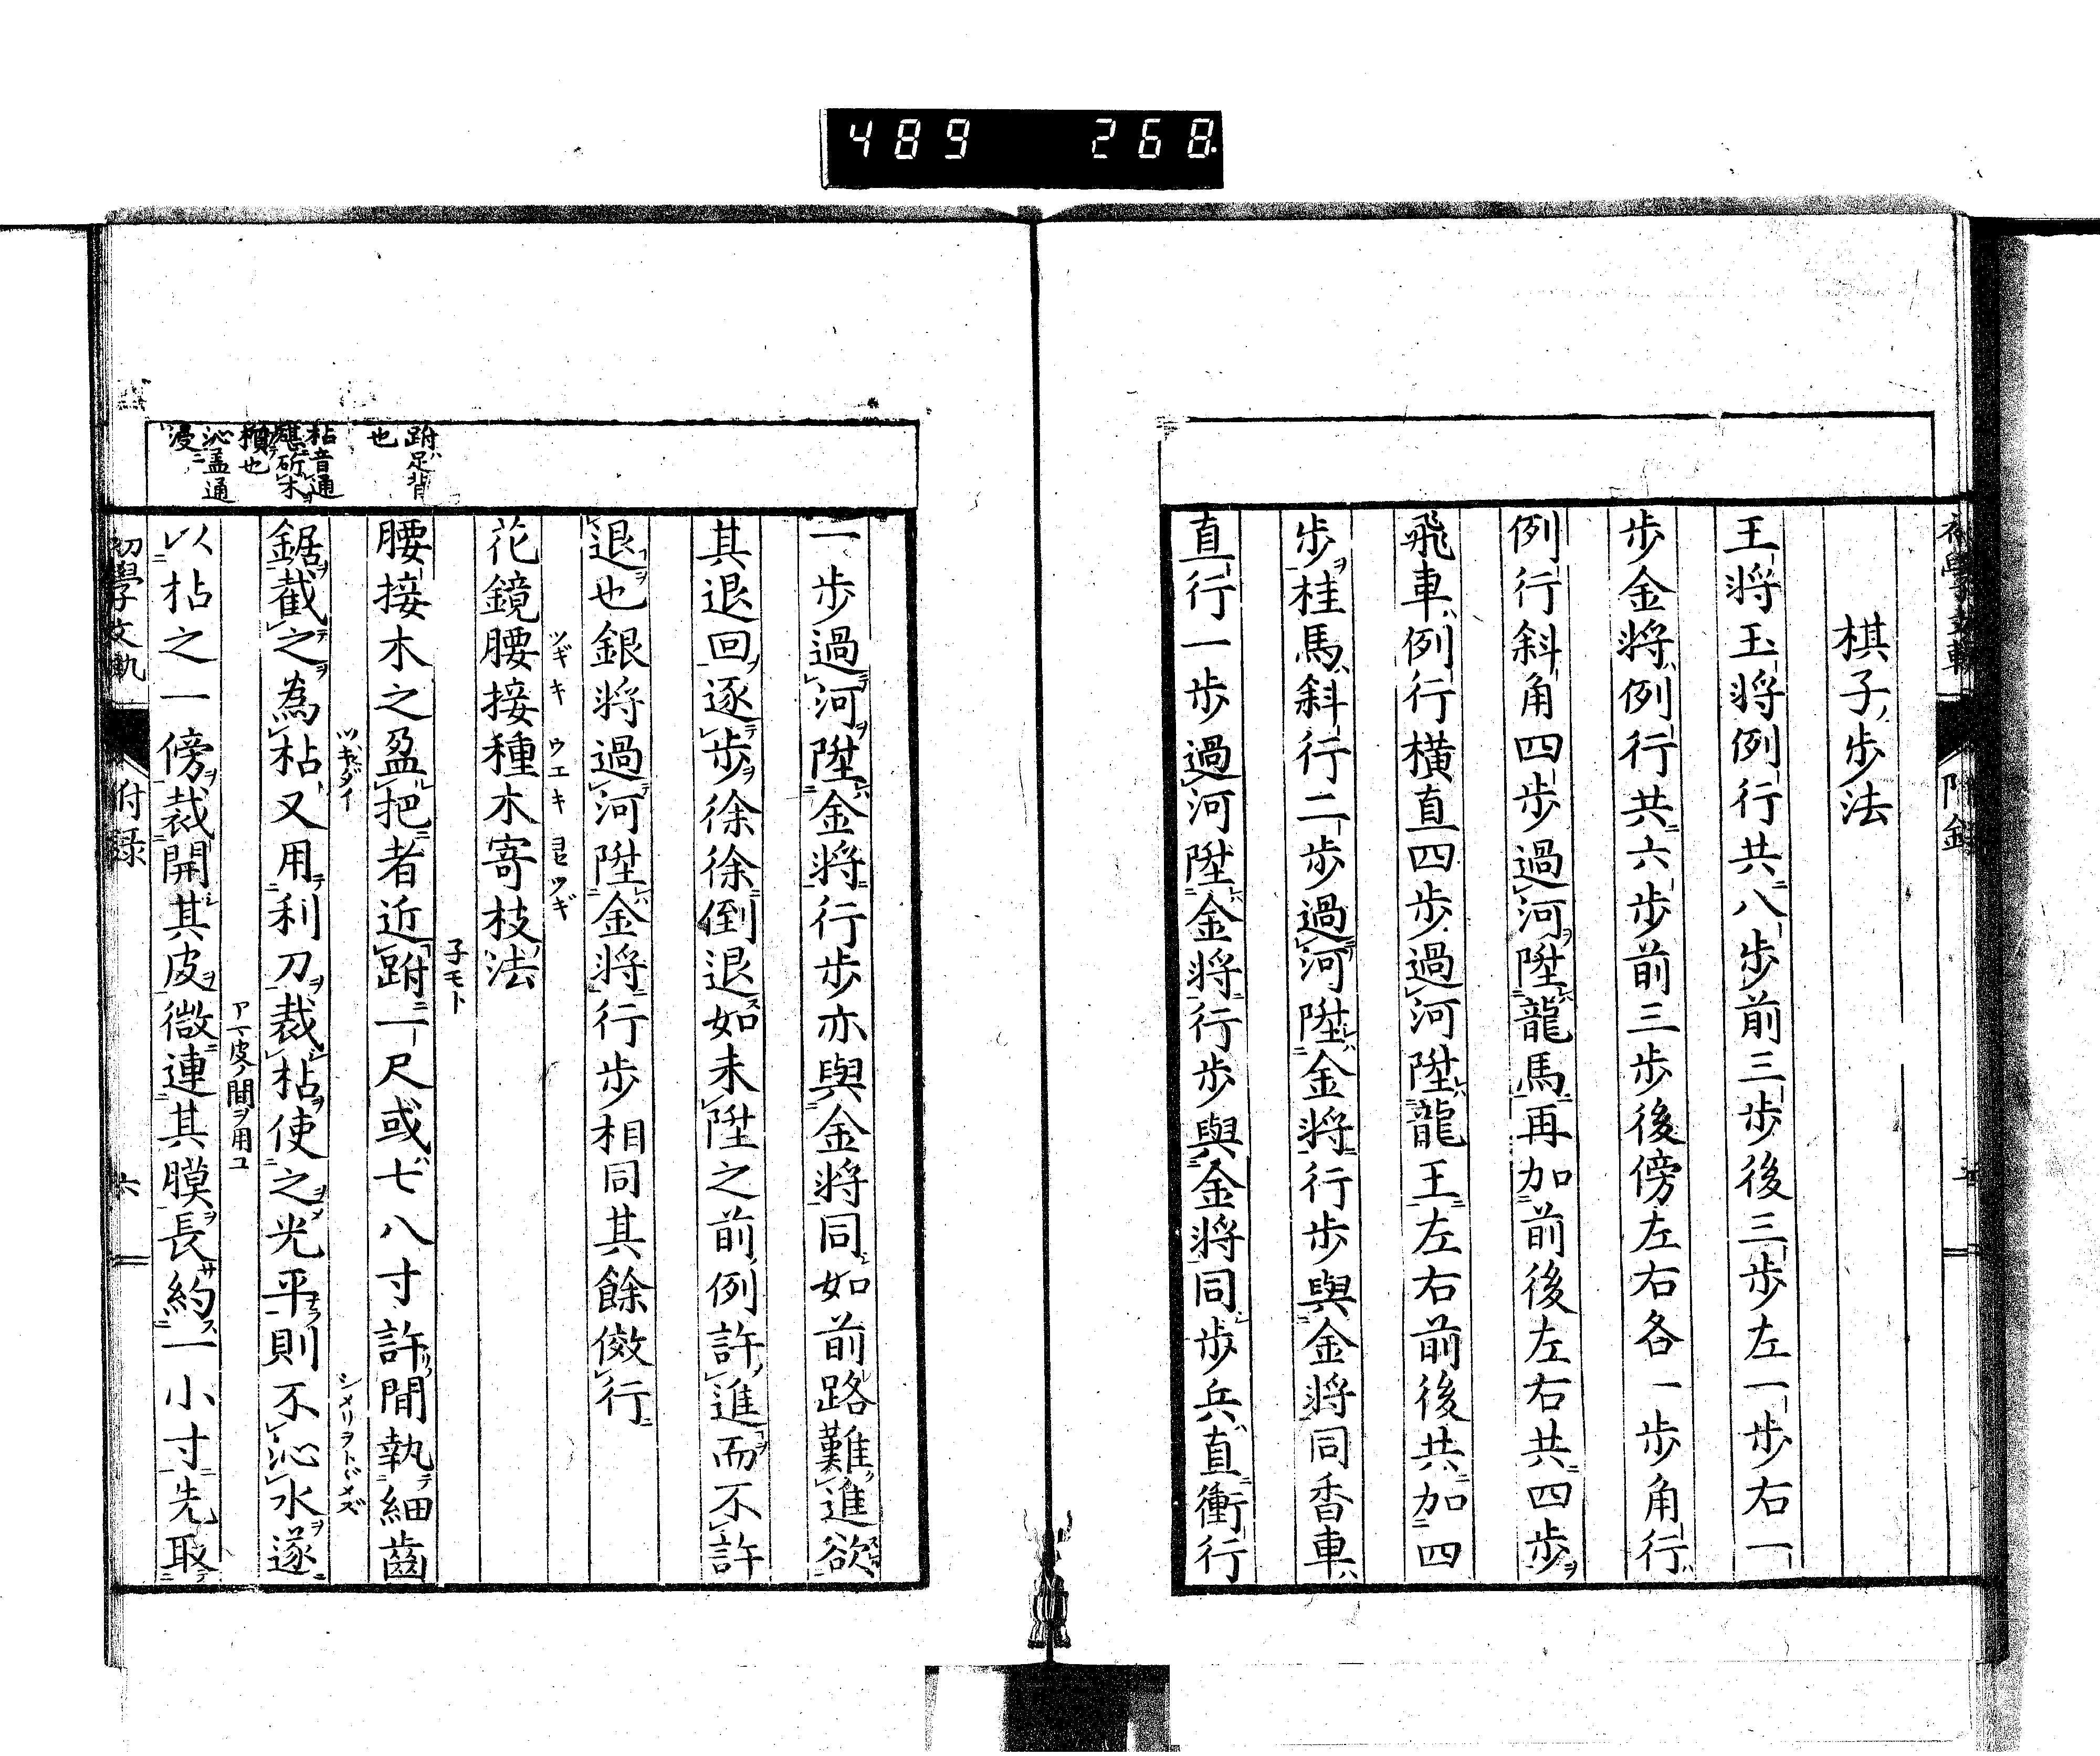 489 268
棋子ノ歩法
王將玉將例行共八歩前三歩後三歩左一歩右一
歩金將例行共六歩前三歩後傍左右各一歩角行
例行斜角四歩過河陞龍馬再加前後左右共四歩
飛車例行橫直四歩過河陞龍王左右前後共加四
歩桂馬斜行二歩過河陞金將行歩與金將同香車
直行一歩過河陞金將行歩與金將同歩兵直衝行
附錄
五
一歩過河陞金將行歩亦與金將同如前路難進欲
其退回逐歩徐徐倒退如未陞之前例許進而不許
退也銀將過河陞金將行歩相同其餘傚行
花鏡腰接種木寄枝法
ツギキ ウエキ ヨセツギ
腰接木之盈把者近跗一尺或七八寸許間執細齒
子モト
鋸截之為枯又用利刀裁枯使之光平則不沁水遂
ツギダイ
シメリヲトヾメズ
以枯之一傍裁開其皮微連其膜長約一小寸先取
皮ノ間ヲ用ユ
跗足背
也
枯音通
斫木
櫍也
沁孟通
浸
初學文軌
付錄
六